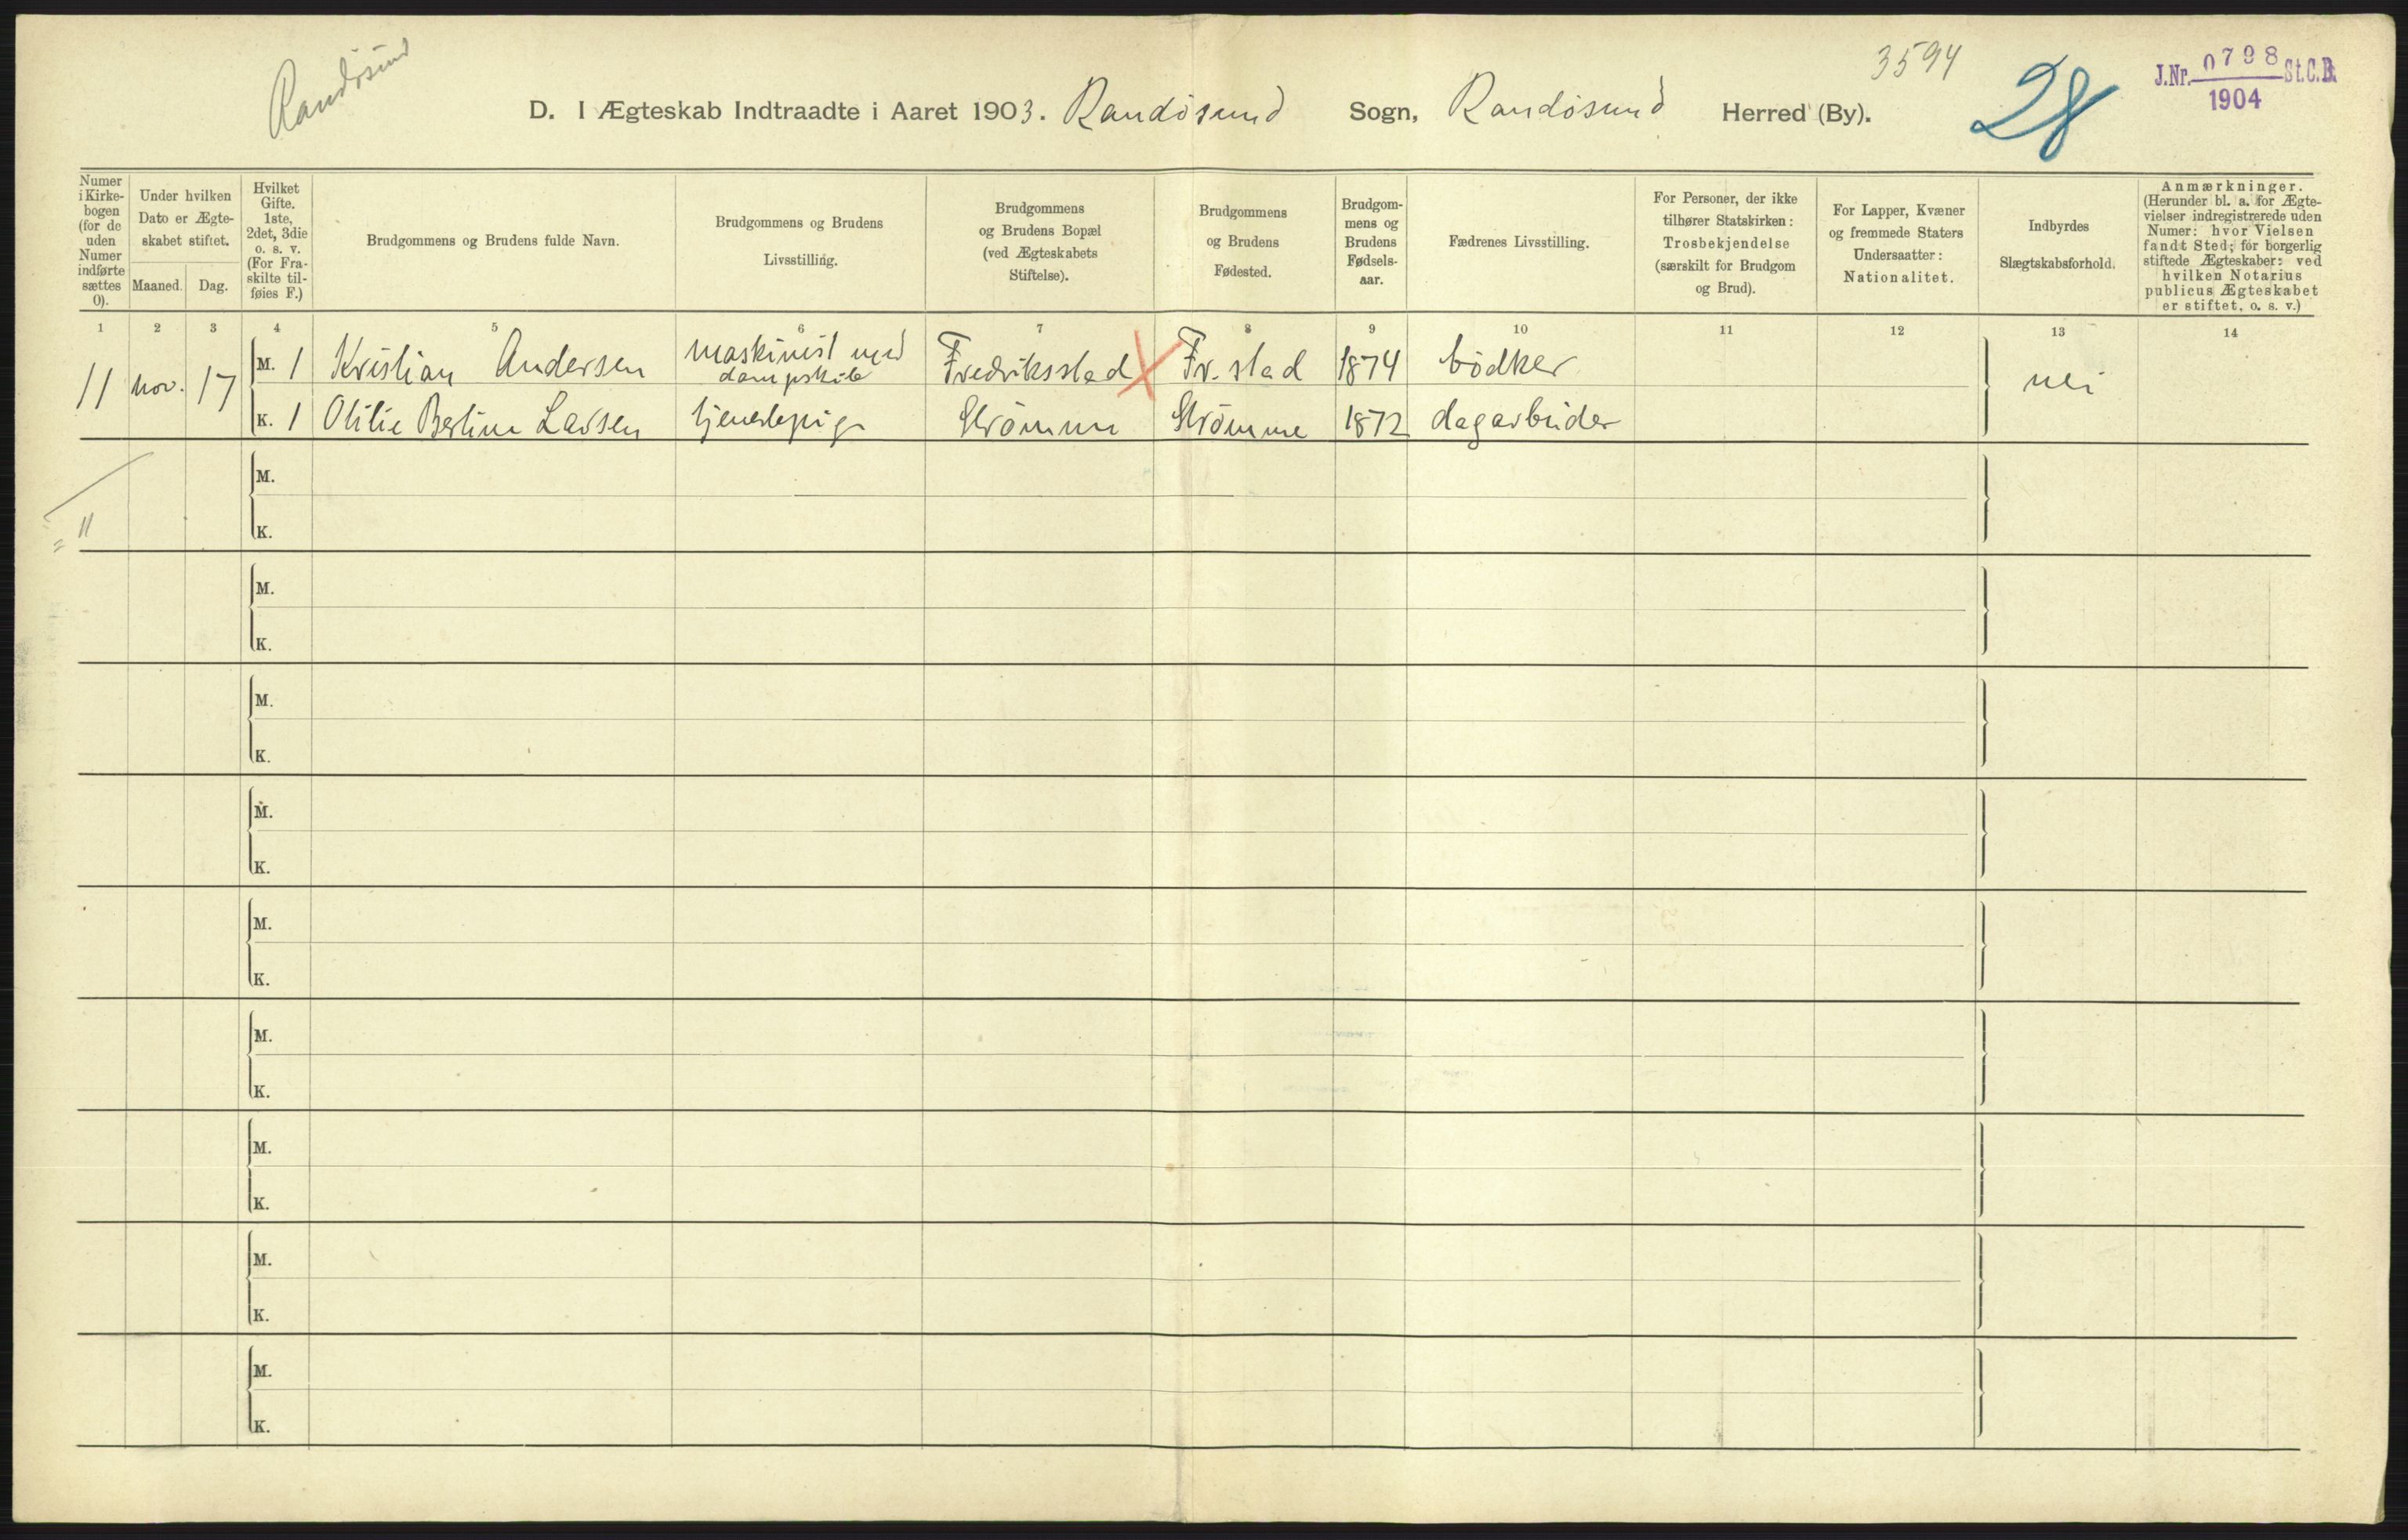 Randøsund
3594
28
J.Nr. 0798 St.C.B.
1904
D. I Ægteskab Indtraadte i Aaret 1903. Randøsund Sogn, Randøsund Herred (By).
Numer
i Kirke-
bogen
(for de
uden
Numer
indførte
sættes
0).
Under hvilken
Dato er Ægte-
skabet stiftet.
Maaned. Dag.
Hvilket
Gifte.
1ste,
2det, 3die
o. s. v.
(For Fra-
skilte til-
føies F.)
Brudgommens og Brudens fulde Navn.
Brudgommens og Brudens
Livsstilling.
Brudgommens
og Brudens Bopæl
(ved Ægteskabets
Stiftelse).
Brudgommens
og Brudens
Fødested.
Brudgom-
mens og
Brudens
Fødsels-
aar.
Fædrenes Livsstilling.
For Personer, der ikke
tilhører Statskirken:
Trosbekjendelse
(særskilt for Brudgom
og Brud).
For Lapper, Kvæner
og fremmede Staters
Undersaatter:
Nationalitet.
Indbyrdes
Slægtskabsforhold.
Anmærkninger.
(Herunder bl. a. for Ægte-
vielser indregistrerede uden
Numer: hvor Vielsen
fandt Sted; for borgerlig
stiftede Ægteskaber: ved
hvilken Notarius
publicus Ægteskabet
er stiftet, o. s. v.)
1 2 3 4 5 6 7 8 9 10 11 12 13 14
11 nov. 17 M. 1 Kristian Andersen maskinist ved dampskib Fredriksstad Fr. stad 1874 bödker nei
K. 1 Otilie Bertine Larsen tjenestepige Strömme Strömme 1872 dagarbeider
M.
11
K.
M.
K.
M.
K.
M.
K.
M.
K.
M.
K.
M.
K.
M.
K.
M.
K.